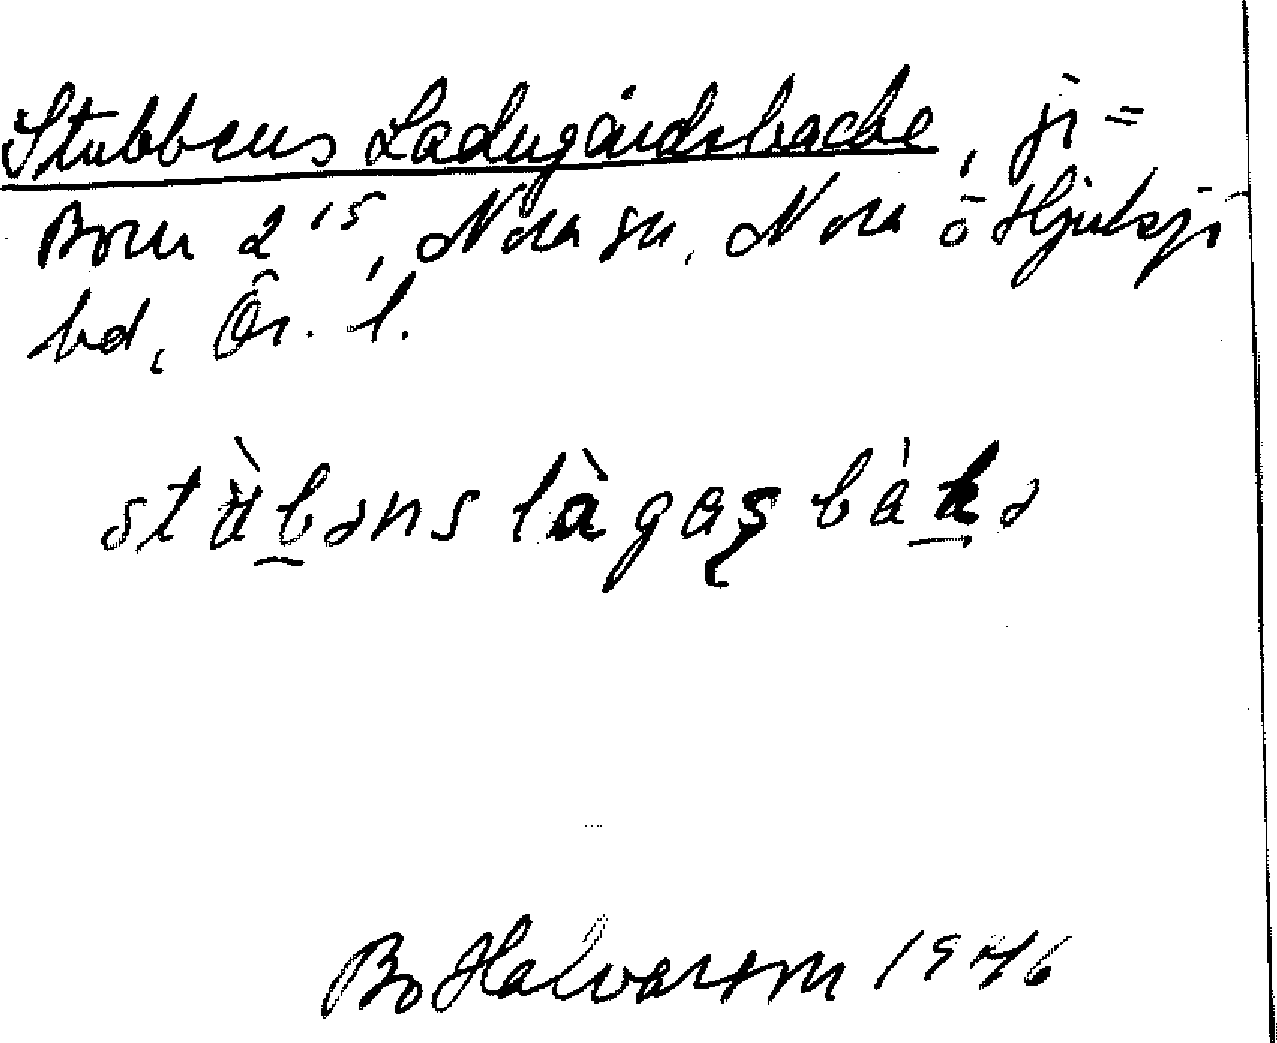 Stubbens Ladugårdsbacke, ji =
Born 2 15, Nora sn, Nora o Hjulsjö
bd, Ör. l.
stùbəns làgaʂbàkə
Bo Halvarson 1946